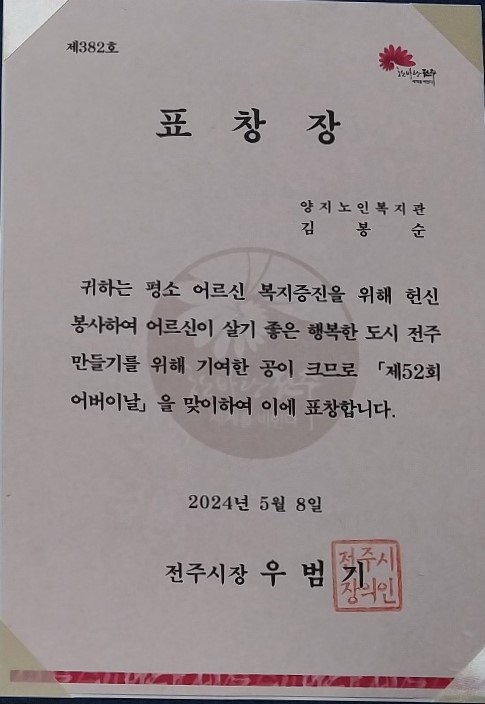 제382호
한바탕전주
표 창 장
양지노인복지관
김 봉 순
귀하는 평소 어르신 복지증진을 위해 헌신
봉사하여 어르신이 살기 좋은 행복한 도시 전주
만들기를 위해 기여한 공이 크므로 「제52회
어버이날」을 맞이하여 이에 표창합니다.
2024년 5월 8일
전주시장 우 범 기
전주시
장의인